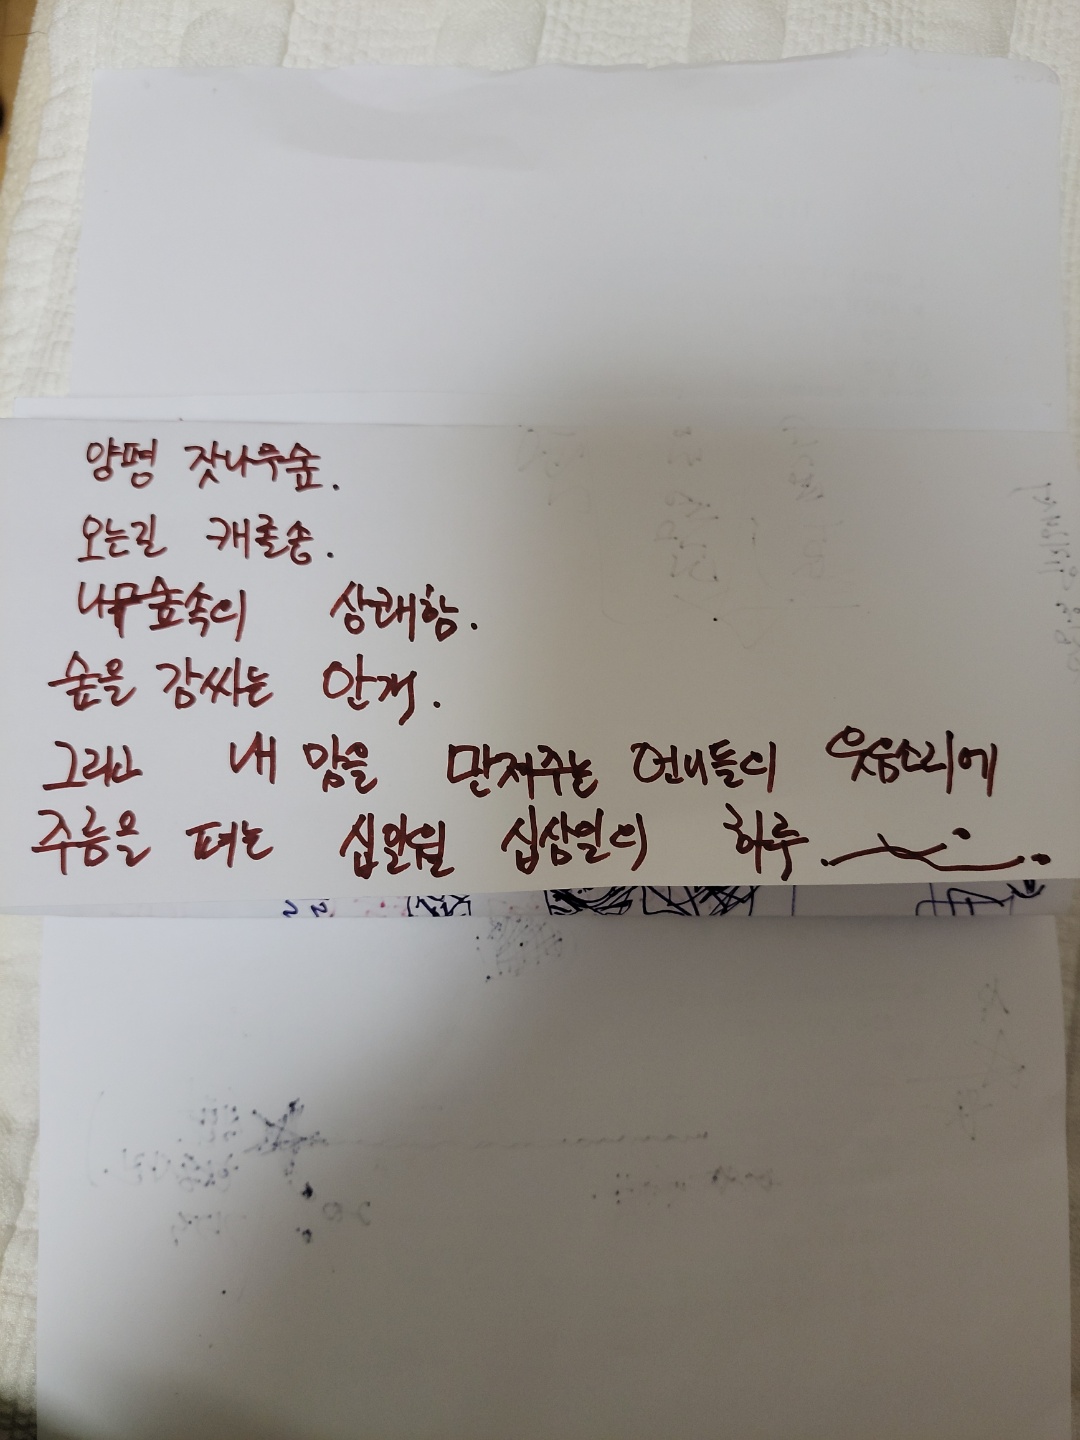 양평 잣나무숲.
오는길 캐롤송.
나무숲속의 상쾌함.
숲을 감싸는 안개.
그리고 내 맘을 만져주는 언니들의 웃음소리에
주름을 펴는 십일월 십삼일의 하루.